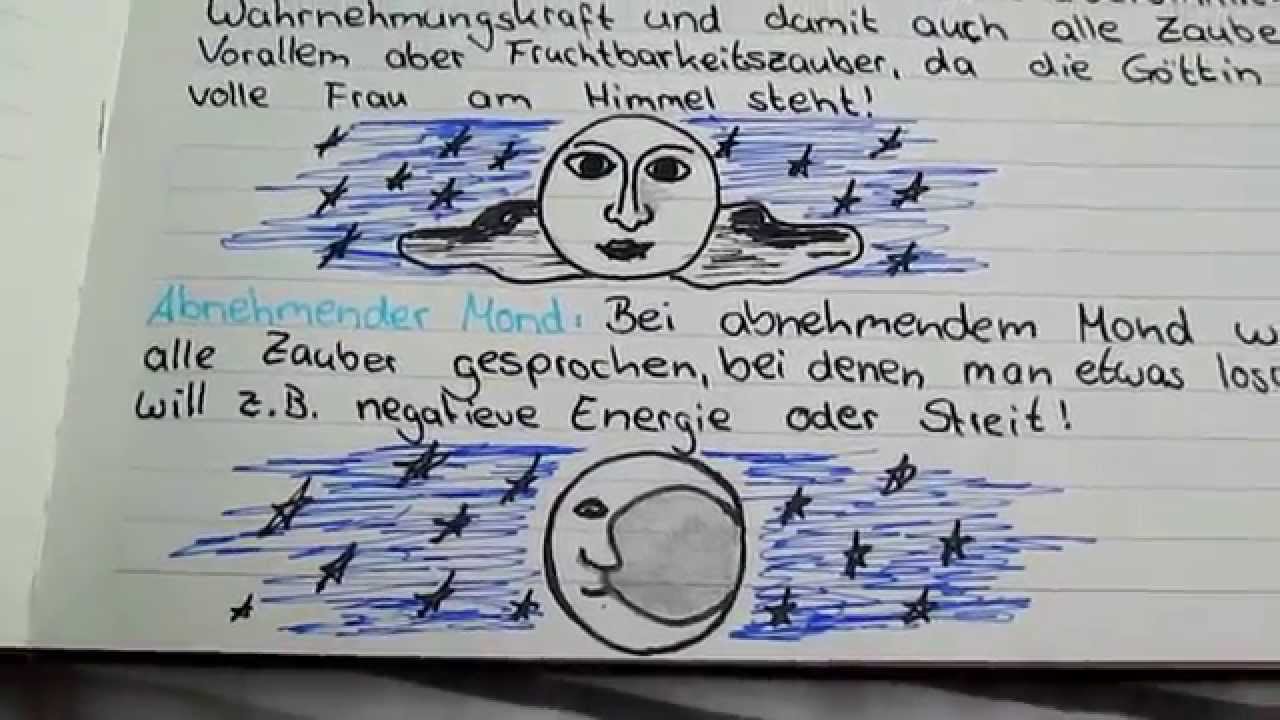 Wahrnehmungskraft und damit auch alle
Vorallem aber Fruchtbarkeitszauber, da die Göttin
volle Frau am Himmel steht!
Abnehmender Mond: Bei abnehmendem Mond
alle Zauber gesprochen, bei denen man etwas
will z.B. negatieve Energie oder Streit!